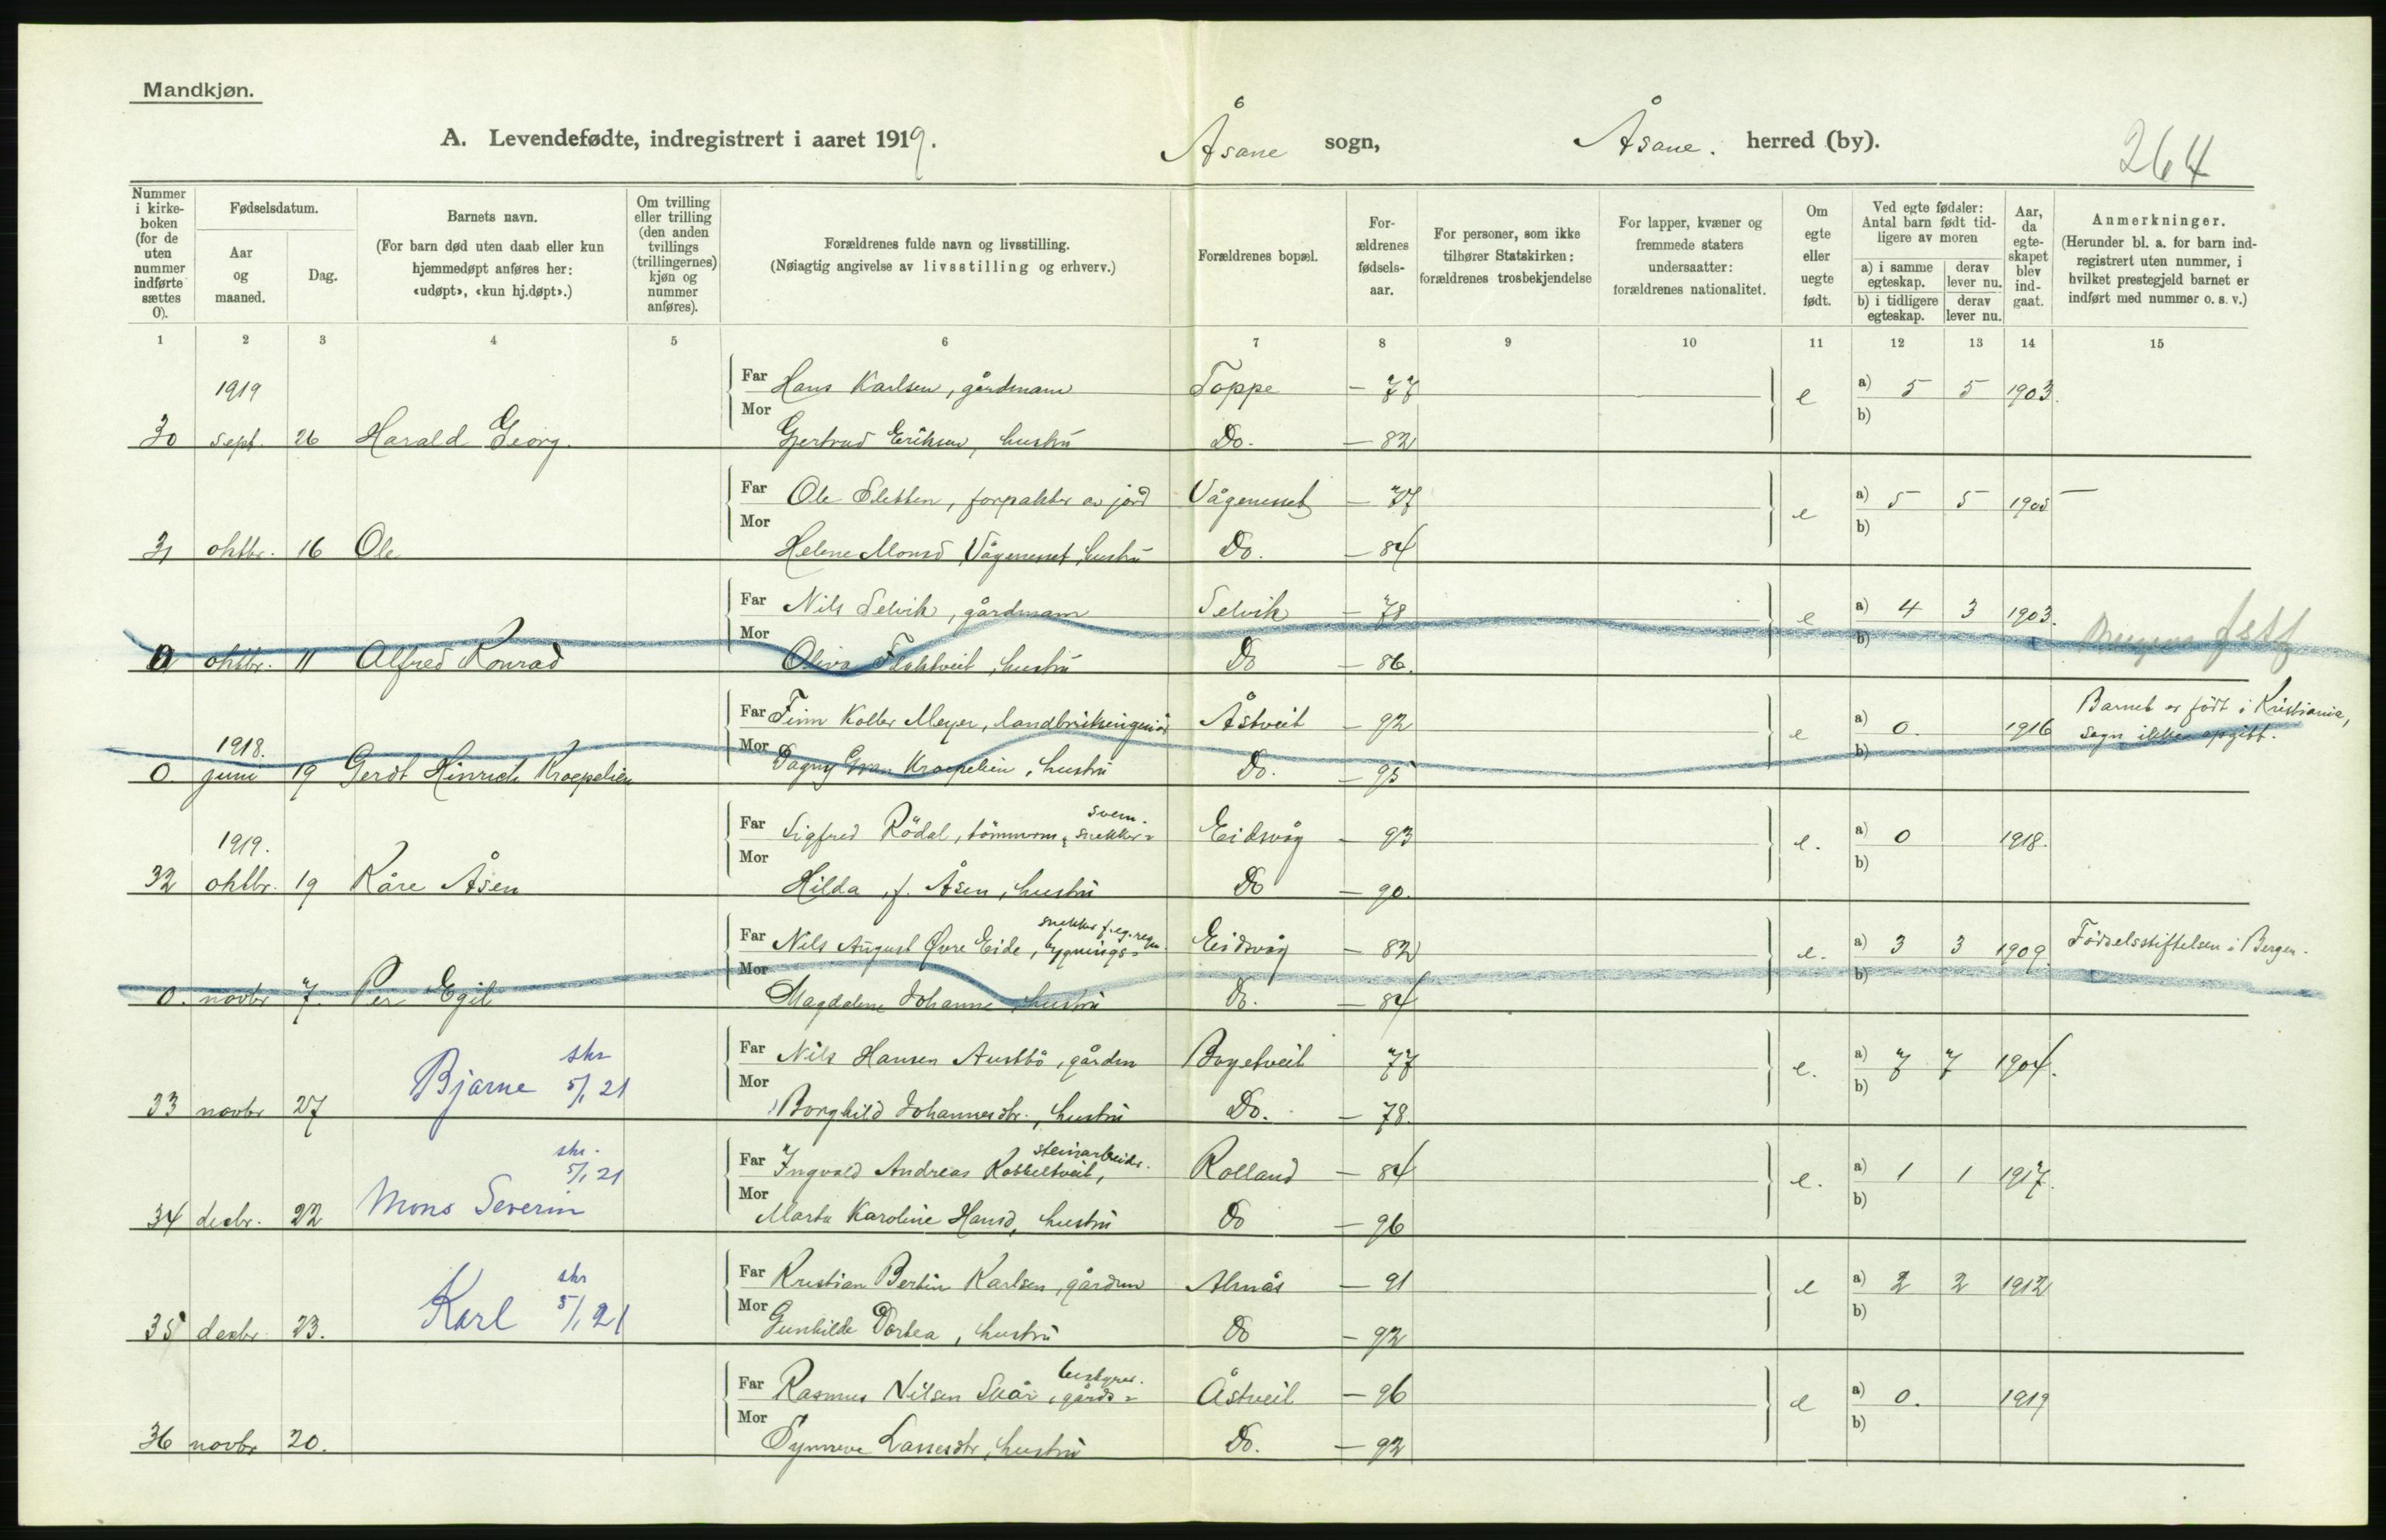 Mandkjøn.
A. Levendefødte, indregistrert i aaret 1919. Åsane sogn, Åsane. herred (by). 264
Nummer i kirkeboken (for de uten nummer indførte sættes 0).
Fødselsdatum.
Aar og maaned.
Dag.
Barnets navn.
(For barn død uten daab eller kun hjemmedøpt anføres her: «udøpt», «kun hj.døpt».)
Om tvilling eller trilling (den anden tvillings (trillingernes) kjøn og nummer anføres).
Forældrenes fulde navn og livsstilling.
(Nøiagtig angivelse av livsstilling og erhverv.)
Forældrenes bopæl.
Forældrenes fødselsaar.
For personer, som ikke tilhører Statskirken: forældrenes trosbekjendelse
For lapper, kvæner og fremmede staters undersaatter: forældrenes nationalitet.
Om egte eller uegte født.
Ved egte fødsler: Antal barn født tidligere av moren
a) i samme egteskap. derav lever nu.
b) i tidligere egteskap. derav lever nu.
Aar, da egteskapet blev indgaat.
Anmerkninger.
(Herunder bl. a. for barn indregistrert uten nummer, i hvilket prestegjeld barnet er indført med nummer o. s. v.)
1 2 3 4 5 6 7 8 9 10 11 12 13 14 15
1919 Far Hans Karlsen, gårdmann Toppe — 77 e a) 5 5 1903.
30 sept. 26 Harald Georg. Mor Gjertrud Eriksen, hustru Do. — 82 b)
Far Ole Sletten, forpakter av jord Vågenesset — 77 e a) 5 5 1905 —
31 oktbr. 16 Ole Mor Helene Monsd Vågenesset, hustru Do. — 84 b)
Far Nils Selvik, gårdmann Selvik — 78 e a) 4 3 1903.
0 oktbr. 11 Alfred Konrad Mor Oliva Flaktveit, hustru Do — 86. b)
Far Finn Koller Meyer, landbruksingeniør Åstveit — 92 e a) 0. 1916 Barnet er født i Kristiania, sogn ikke opgitt.
1918.
0. juni 19 Gerdt Hinrich Kroepelien Mor Dagny Gran Kroepelien, hustru Do. — 95 b)
Far Sigfred Rödal, tömmerm. svem. snekker= Eidsvåg — 93 e. a) 0 1918.
1919.
32 oktbr. 19 Kåre Åsen Mor Hilda, f. Åsen, hustru Do — 90. b)
Far Nils August Øvre Eide, bygnings= snekker f. eg. regn. Eidsvåg — 82 e. a) 3 3 1909. Födselsstiftelsen i Bergen.
0. novbr 7. Per Egil Mor Magdalene Johanne, hustru Do. — 84 b)
Far Nils Hansen Austbö, gårdm Breistveit 77 e. a) 7 7 1904.
33 novbr 27 Bjarne skr 5/1 21 Mor Borghild Johannesdtr., hustru Do. — 78. b)
Far Ingvald Andreas Kobbeltveit, steinarbeider. Rolland — 84 e. a) 1 1 1917.
34 desbr. 22 Mons Severin skr. 5/1 21 Mor Marta Karoline Hansd, hustru Do — 96 b)
Far Kristian Bertin Karlsen, gårdm Almås — 91 e a) 2 2 1912
35 desbr 23. Karl skr 5/1 21 Mor Gunhilde Dortea, hustru Do — 92 b)
Far Rasmus Nilsen Skår, gårds= bestyrer. Åstveit — 96 e a) 0. 1919
36 novbr 20. Mor Synneve Lassesdtr, hustru Do. — 92 b)